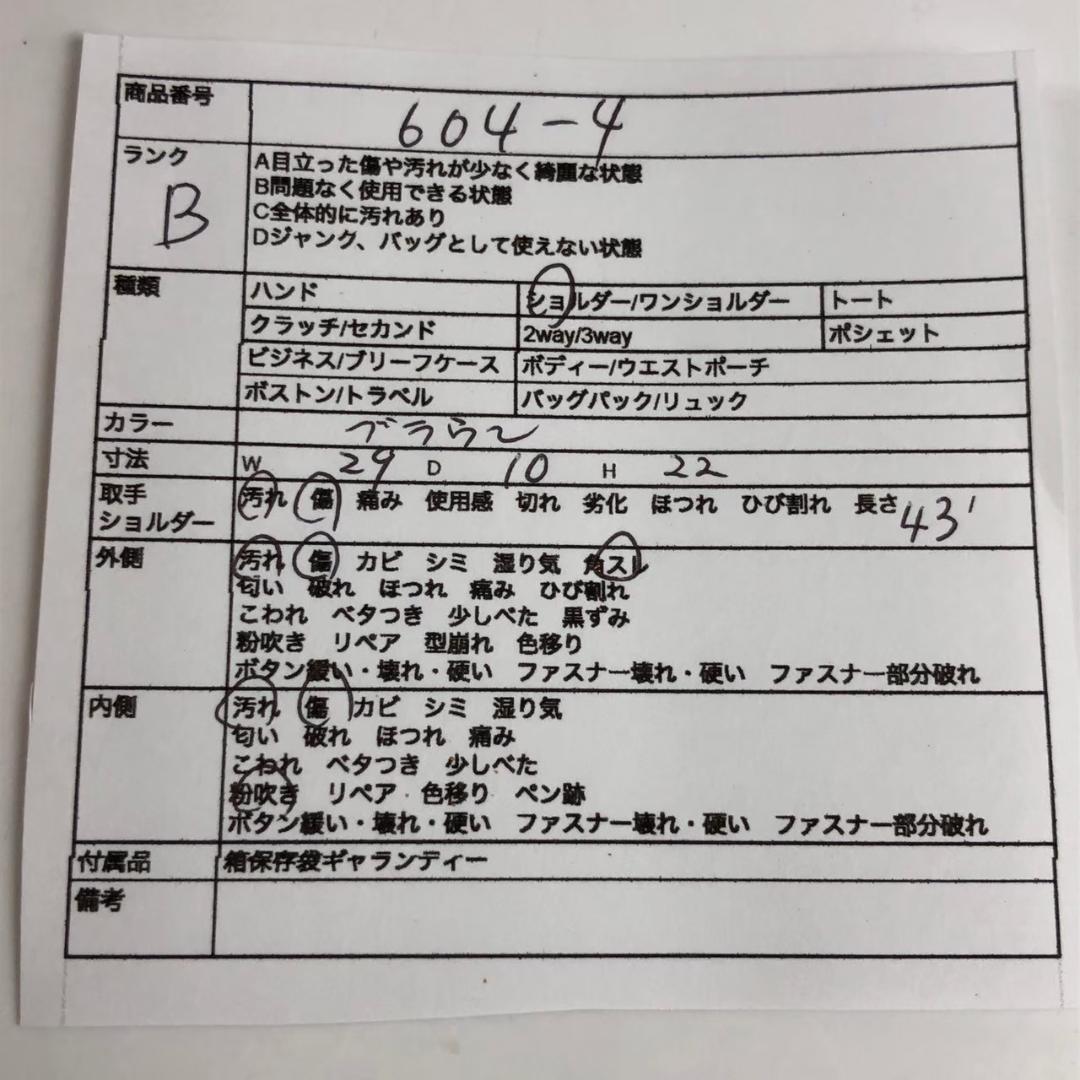 商品番号 604-4
ランク B
A目立った傷や汚れが少なく綺麗な状態
B問題なく使用できる状態
C全体的に汚れあり
Dジャンク、バッグとして使えない状態
種類 ハンド ショルダー/ワンショルダー トート
クラッチ/セカンド 2way/3way ポシェット
ビジネス/ブリーフケース ボディー/ウエストポーチ
ボストン/トラベル バッグパック/リュック
カラー ブラウン
寸法 W 29 D 10 H 22
取手 汚れ 傷 痛み 使用感 切れ 劣化 ほつれ ひび割れ 長さ 43
ショルダー
外側 汚れ 傷 カビ シミ 湿り気 角スレ
匂い 破れ ほつれ 痛み ひび割れ
こわれ ベタつき 少しべた 黒ずみ
粉吹き リペア 型崩れ 色移り
ボタン緩い・壊れ・硬い ファスナー壊れ・硬い ファスナー部分破れ
内側 汚れ 傷 カビ シミ 湿り気
匂い 破れ ほつれ 痛み
こわれ ベタつき 少しべた
粉吹き リペア 色移り ペン跡
ボタン緩い・壊れ・硬い ファスナー壊れ・硬い ファスナー部分破れ
付属品 箱保存袋ギャランディー
備考